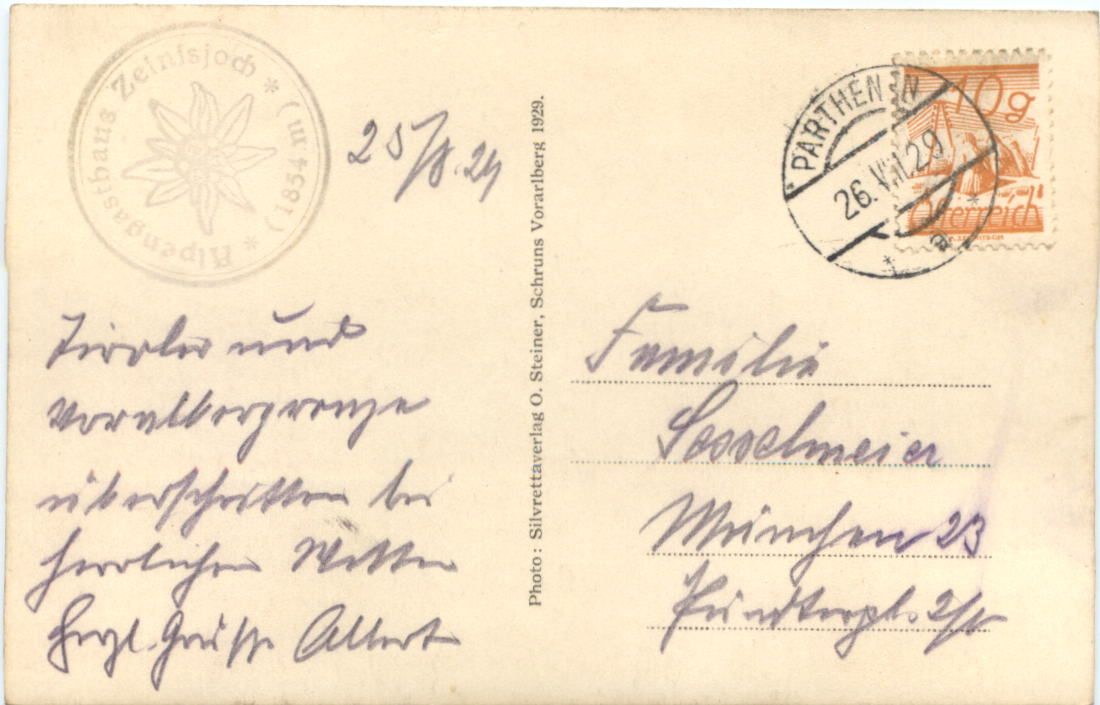 Alpengasthaus Zeinisjoch * (1854 m) *
25/8.29
Tiroler und
Vorarlbergrenze
überschritten bei
herrlichen Wetter
Herzl. Grüsse Albert
Photo: Silvrettaverlag O. Steiner, Schruns Vorarlberg 1929.
PARTHENEN
26.VIII.29
* a *
10g
Österreich
Familie
Sesselmeier
München 23